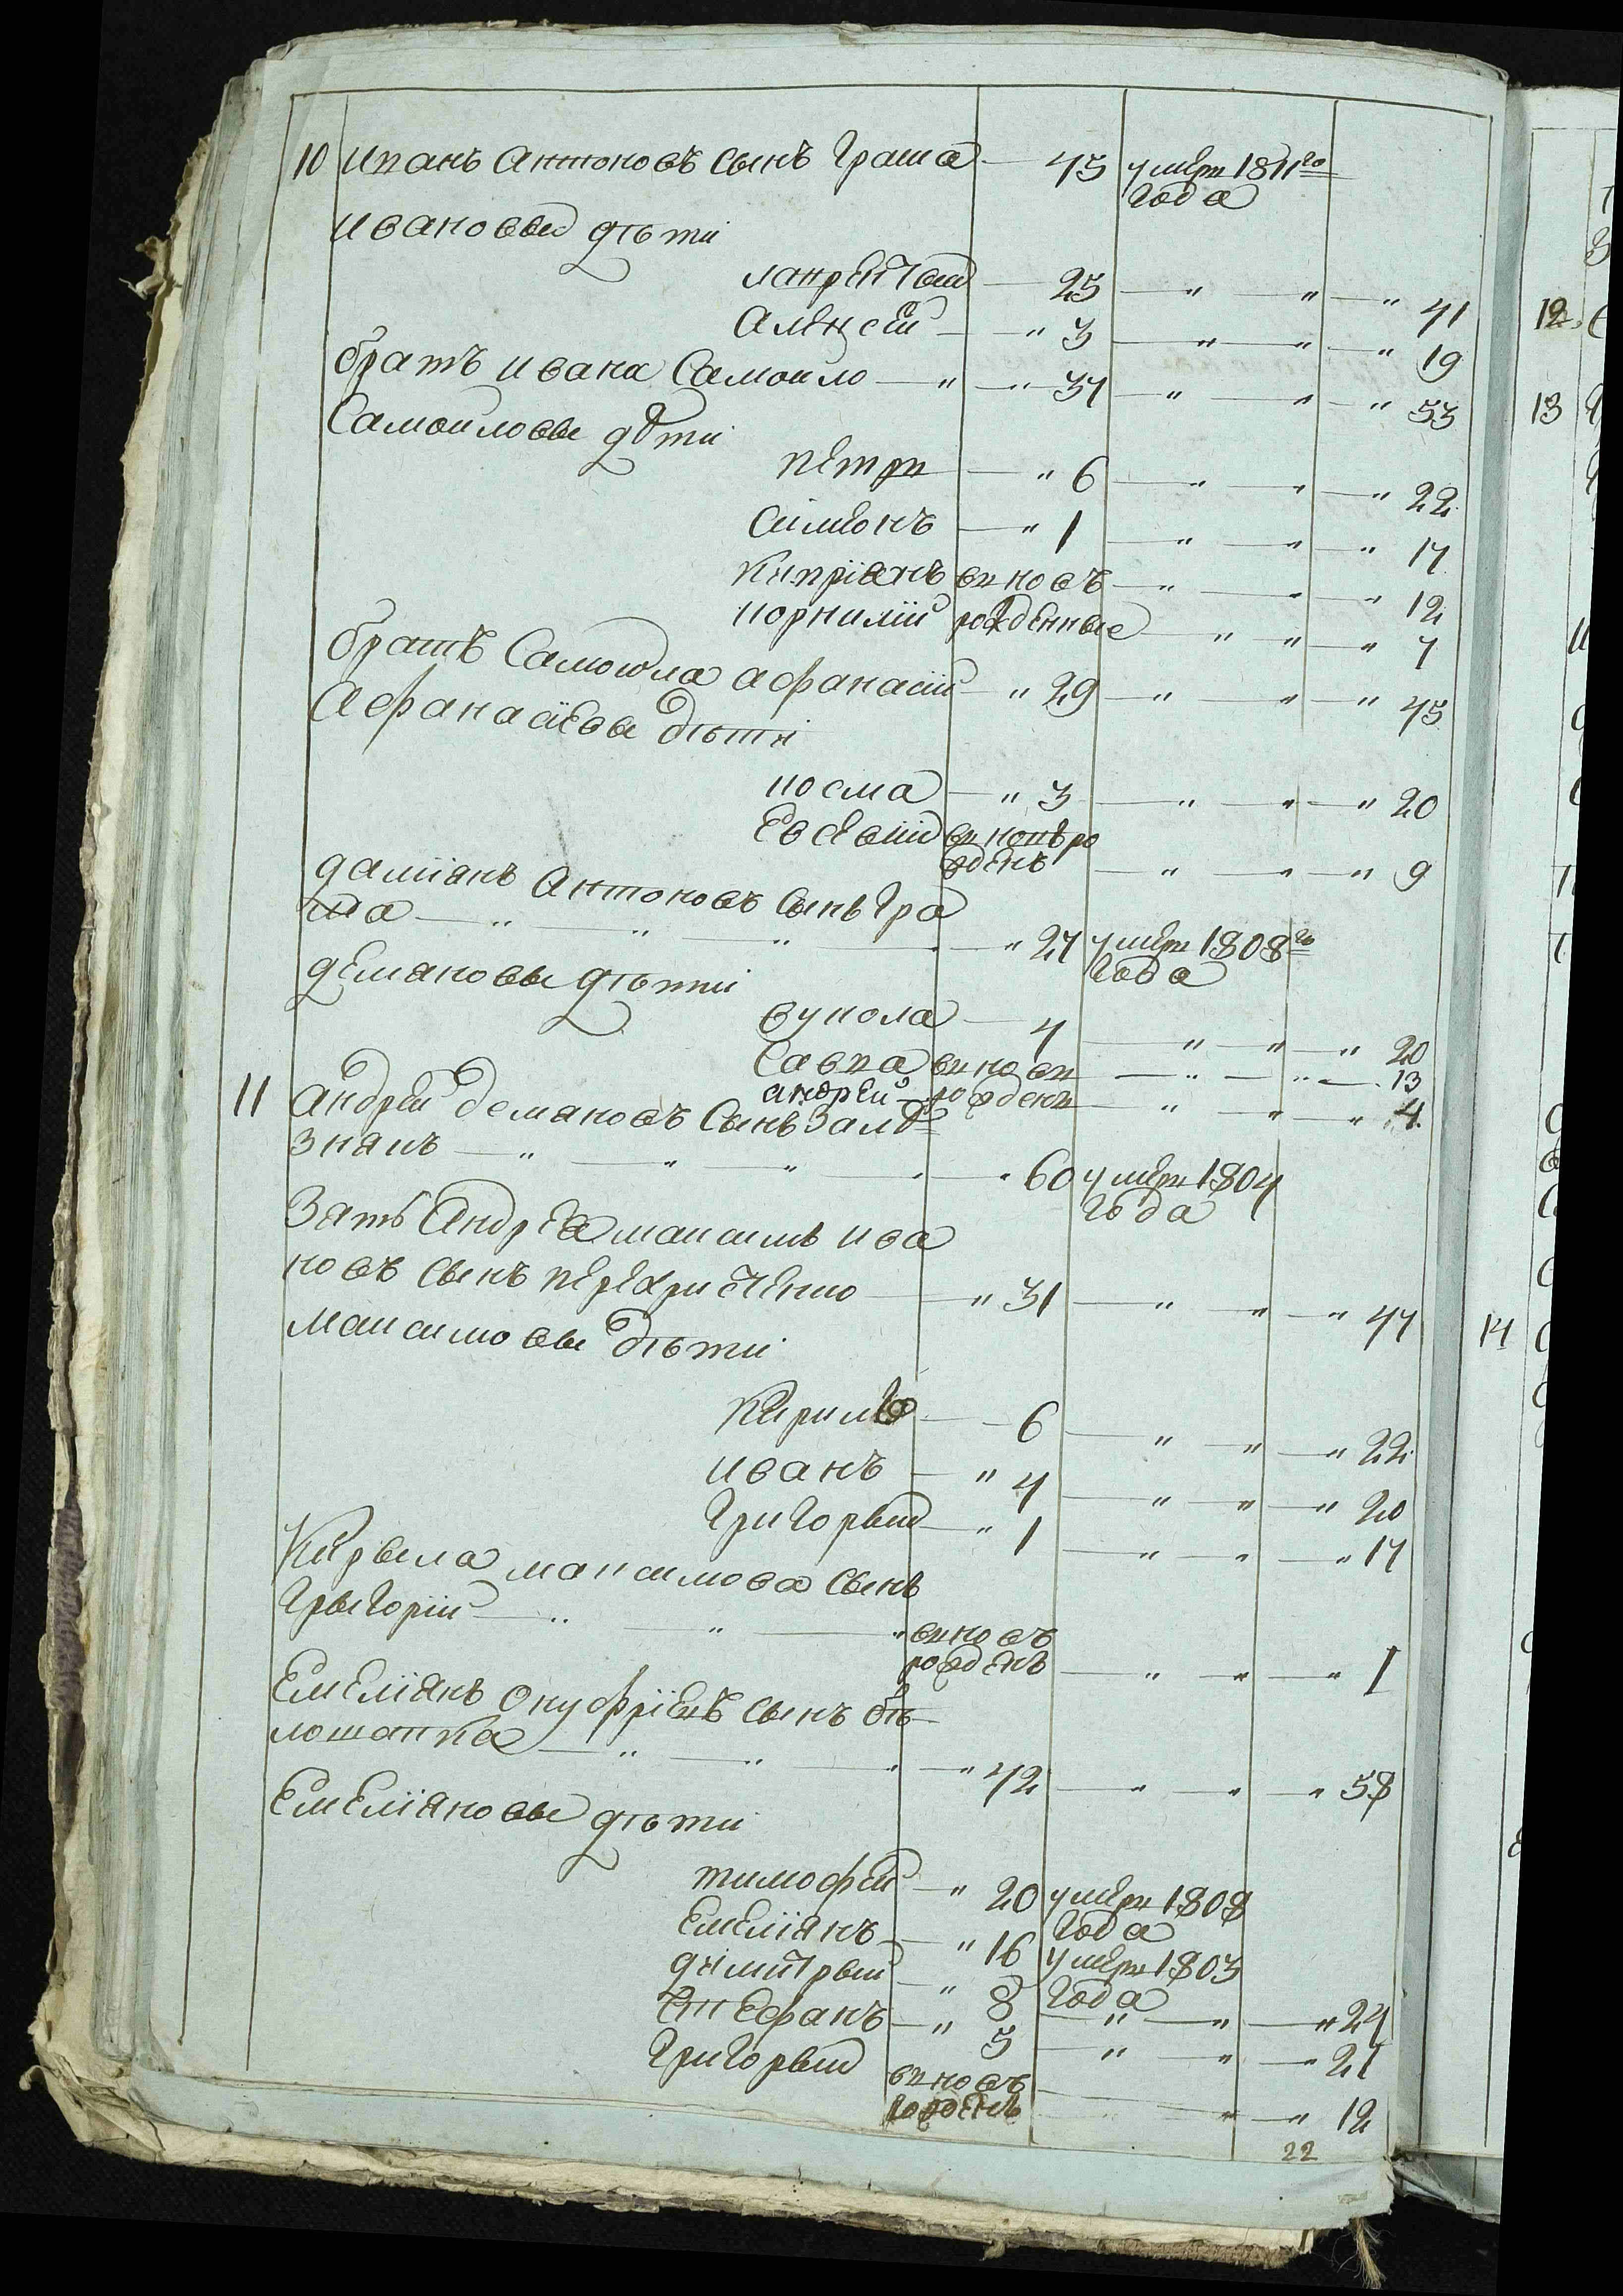 10 Иванъ Антоновъ Сынъ Граша — 45 умеръ 1811го
года
Ивановы дѣти
Лаврентий — 25 — " — " — " 41
Алексей — " 3 — " — " — " 19
братъ Ивана Самоило — " — " 37 — " — " — " 53
Самоиловы дѣти
Петръ — " 6 — " — " — " 22
Симионъ — " 1 — " — " — " 17
Киприянъ вновъ — " — " — " 12
Корнилий рожденные — " — " — " 7
братъ Самоила Афанасий — " 29 — " — " — " 45
Афанасиевы дѣти
Косма — " 3 — " — " — " 20
Евсевий вновъ ро
жденъ — " — " — " 9
Дамиянъ Антоновъ Сынъ Гра
ша — " — " — " — " 27 умеръ 1808го
года
Демяновы дѣти
Вукола — 4 — " — " — " 20
Савва вновъ — " — " — 13
Андрей рожденъ — " — " — " 4
11 Андрей Демяновъ Сынъ Залѣ
знякъ — " — " — " — " 60 умеръ 1804
года
Зять Андрея Максимъ Ива
новъ Сынъ Перехристенко — " 31 — " — " — " 47
Максимовы дѣти
Кирило — 6 — " — " — " 22
Иванъ — " 4 — " — " — " 20
Григорый — " 1 — " — " — " 17
Кирыла Максимова Сынъ
Грыгорий — " — " — " вновъ
рожденъ — " — " — " 1
Емелиянъ Онуфриевъ Сынъ бѣ
лошапка — " — " — " — " 42 — " — " — " 58
Емелияновы дѣти
Тимофей — " 20 умеръ 1808
года
Емелиянъ — " 16 умеръ 1803
года
Димитрый — " 8 — " — " — " 24
Стефанъ — " 5 — " — " — " 21
Григорый вновъ
рожденъ — " — " 12
22
12
13
14